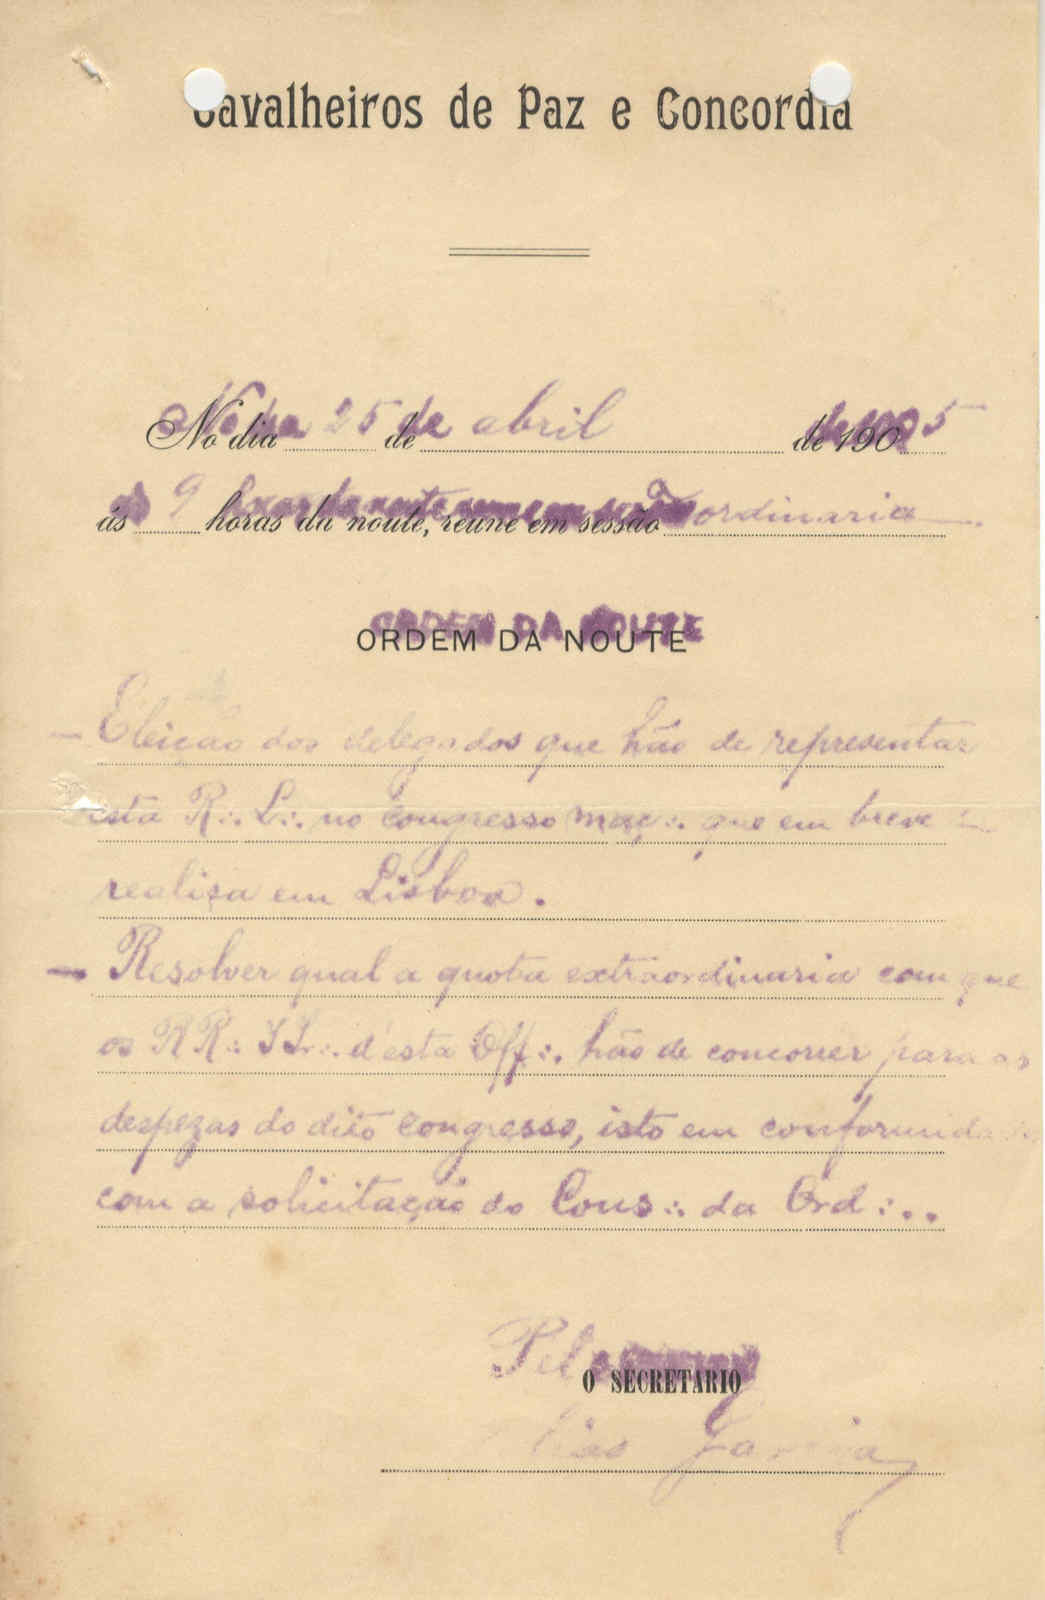 Cavalheiros de Paz e Concordia
No dia 25 de abril de 1905
ás 9 horas da noute, reune em sessão ordinaria
ORDEM DA NOUTE
— Eleição dos delegados que hão de representar
esta R∴ L∴ no congresso maç∴ que em breve se
realisa em Lisboa.
— Resolver qual a quota extraordinaria com que
os RR∴ II∴ d'esta Off∴ hão de concorrer para as
despezas do dito congresso, isto em conformidade
com a solicitação do Cons∴ da Ord∴.
Pel
O SECRETARIO
Garcia